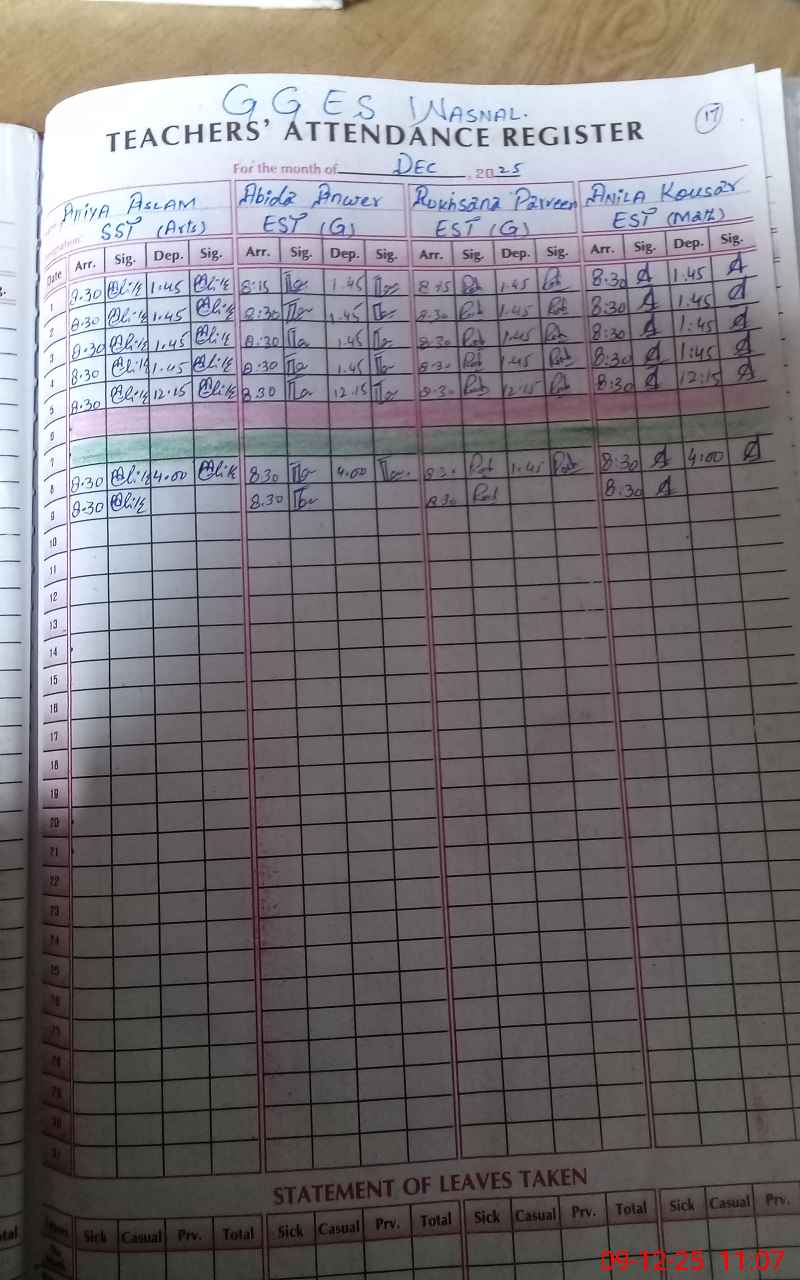 G G E S WASNAL.
17
TEACHERS' ATTENDANCE REGISTER
For the month of DEC, 2025
ANIYA ASLAM Abida Anwer Rukhsana Parveen ANILA Kousar
SST (Arts) EST (G) EST (G) EST (Math)
Date Arr. Sig. Dep. Sig. Arr. Sig. Dep. Sig. Arr. Sig. Dep. Sig. Arr. Sig. Dep. Sig.
1 8.30 1.45 8:15 1.45 8:15 1.45 8:30 1.45
2 8.30 1.45 8:30 1.45 8.30 1.45 8:30 1.45
3 8.30 1.45 8.30 1.45 8.30 1.45 8:30 1:45
4 8.30 1.45 8.30 1.45 8.30 1.45 8:30 1:45
5 8.30 12.15 8.30 12.15 8.30 12.15 8:30 12:15
6
7
8 8.30 4.00 8.30 4.00 8.30 1.45 8:30 4:00
9 8.30 8.30 8.30 8:30
10
11
12
13
14
15
16
17
18
19
20
21
22
23
24
25
26
29
30
31
STATEMENT OF LEAVES TAKEN
Sick Casual Prv. Total Sick Casual Prv. Total Sick Casual Prv. Total Sick Casual Prv.
09-12-25 11:07